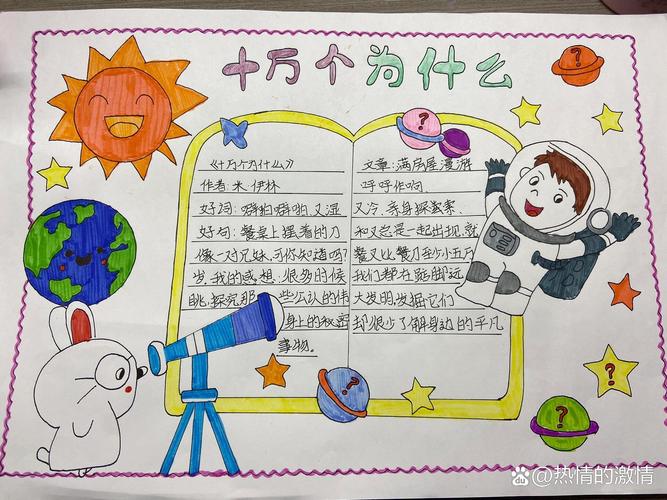 十万个为什么
《十万个为什么》 文章:满房屋漫游
作者:米·伊林 呼呼作响
好词:噼啪噼啪、又湿 又冷、亲身探索家.
好句:餐桌上摆着的刀 和叉总是一起出现,就
像一对兄妹,可你知道吗? 餐叉比餐刀至少小五
岁,我的感想:很多时候 我们都在踮脚远
眺,探究那一些公认的伟 大发明,发掘它们
身上的秘密 却很少了解身边的平凡
事物。
?
?
?
?
@热情的激情